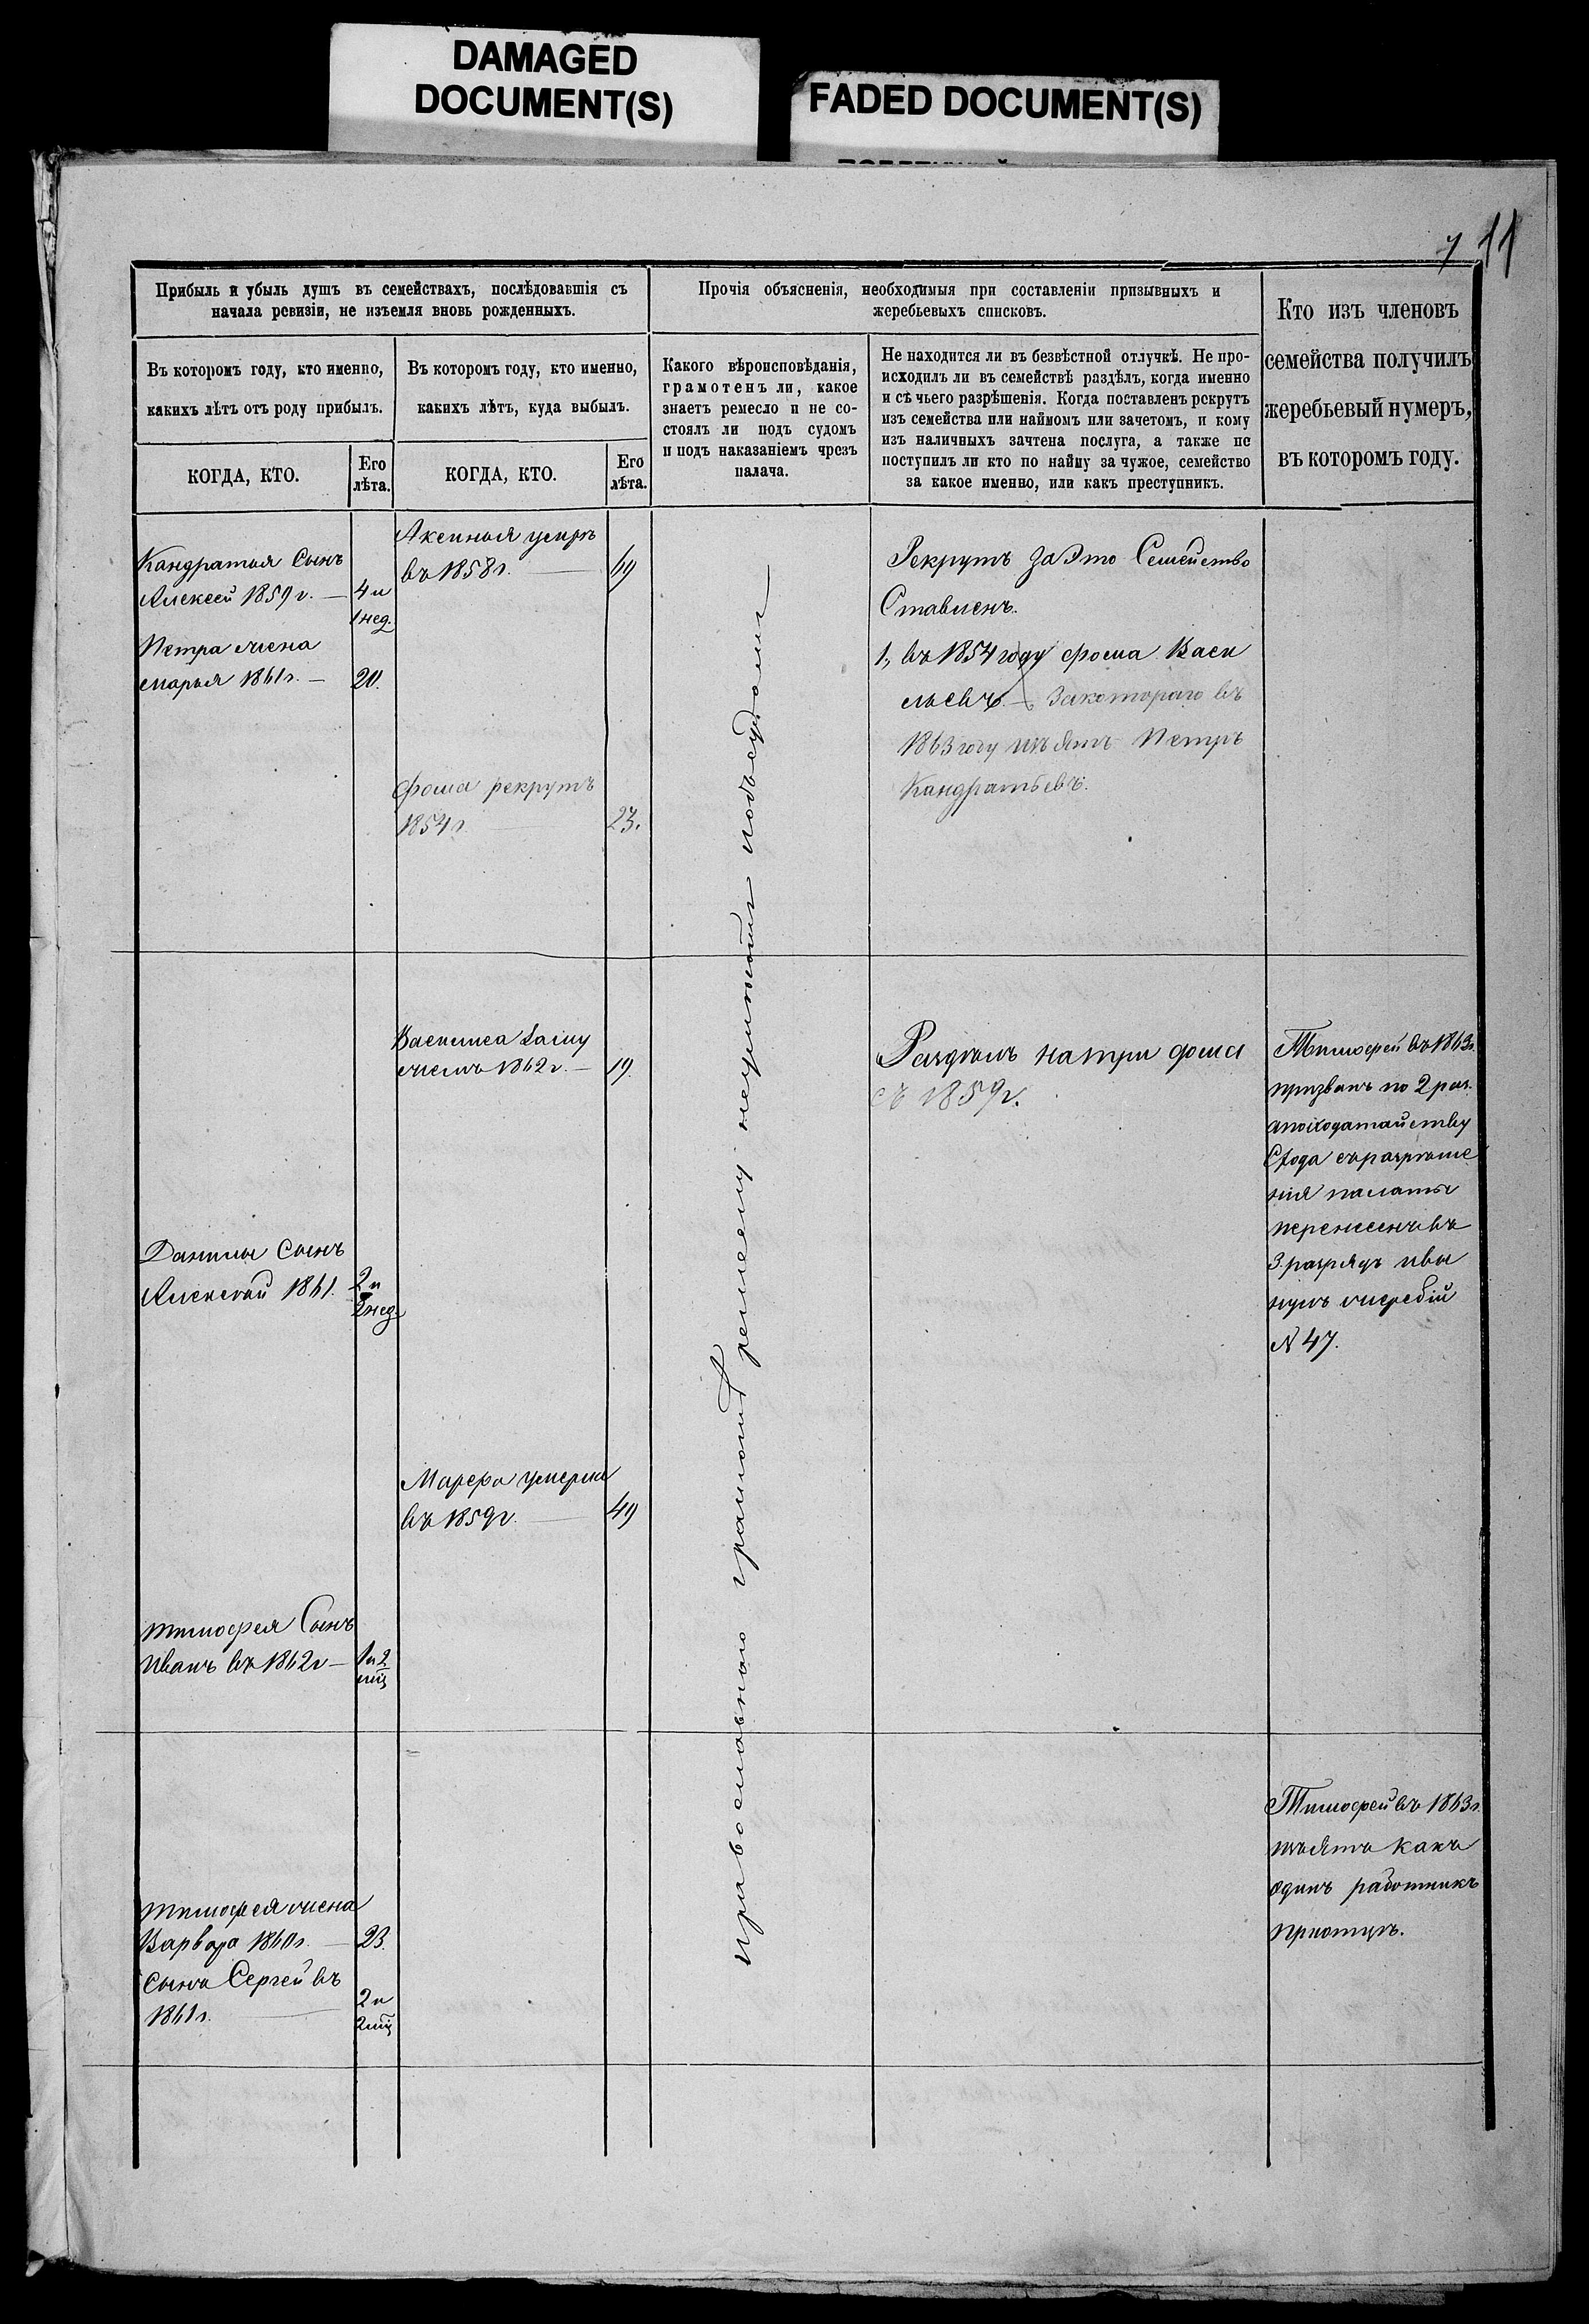 DAMAGED
DOCUMENT(S)
FADED DOCUMENT(S)
7 11
Прибыль и убыль душъ въ семействахъ, послѣдовавшія съ
начала ревизіи, не изъемля вновь рожденныхъ.
Въ которомъ году, кто именно,
какихъ лѣтъ отъ роду прибылъ.
КОГДА, КТО.
Его
лѣта.
Въ которомъ году, кто именно,
какихъ лѣтъ, куда выбылъ.
КОГДА, КТО.
Его
лѣта.
Прочія объясненія, необходимыя при составленіи призывныхъ и
жеребьевыхъ списковъ.
Какого вѣроисповѣданія,
грамотенъ ли, какое
знаетъ ремесло и не со-
стоялъ ли подъ судомъ
и подъ наказаніемъ чрезъ
палача.
Не находится ли въ безвѣстной отлучкѣ. Не про-
исходилъ ли въ семействѣ раздѣлъ, когда именно
и съ чьего разрѣшенія. Когда поставленъ рекрутъ
изъ семейства или наймомъ или зачетомъ, и кому
изъ наличныхъ зачтена послуга, а также не
поступилъ ли кто по найму за чужое, семейство
за какое именно, или какъ преступникъ.
Кто изъ членовъ
семейства получилъ
жеребьевый нумеръ,
въ которомъ году.
Кандратья Сынъ
Алексей 1859 г. — 4 и
1 нед.
Петра жена
марья 1861 г. — 20.
Аксинья умеръ
въ 1858 г. — 69
Фома рекрутъ
1854 г. — 23.
Рекрутъ за Это Семейство
Ставленъ.
1, въ 1854 году фома Васи
льевъ. — За котораго въ
1863 году изъятъ Петръ
Кандратьевъ.
православнаго грамотѣ ремеслу неучитсия подъсудомъ
Василиса Зазму
жемъ 1862 г. — 19.
Раздѣлъ на три дома
съ 1859 г.
Тимофей въ 1863 г.
призванъ по 2 раз.
а походатайству
Схода съ разрѣше
ния палаты
перенесенъ въ
3. разрядъ и вы
нулъ жеребій
N 47.
Данилы Сынъ
Алексѣй 1861. 2 и
2 нед.
Марфа умерла
въ 1859 г. — 49
тимофея Сынъ
Иванъ въ 1862 г — 1 и 2
мц
Тимофей въ 1863 г.
изъятъ какъ
один работникъ
при отцѣ.
тимофея жена
Варвара 1860 г. — 23.
Сынъ Сергей въ
1861 г. — 2 и
2 мц